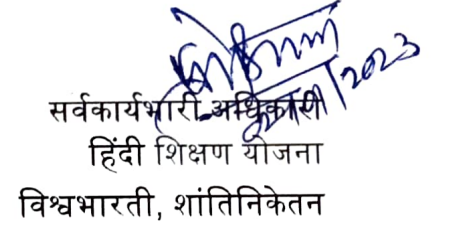 2023
सर्वकार्यभारी अधिकारी
हिंदी शिक्षण योजना
विश्वभारती, शांतिनिकेतन